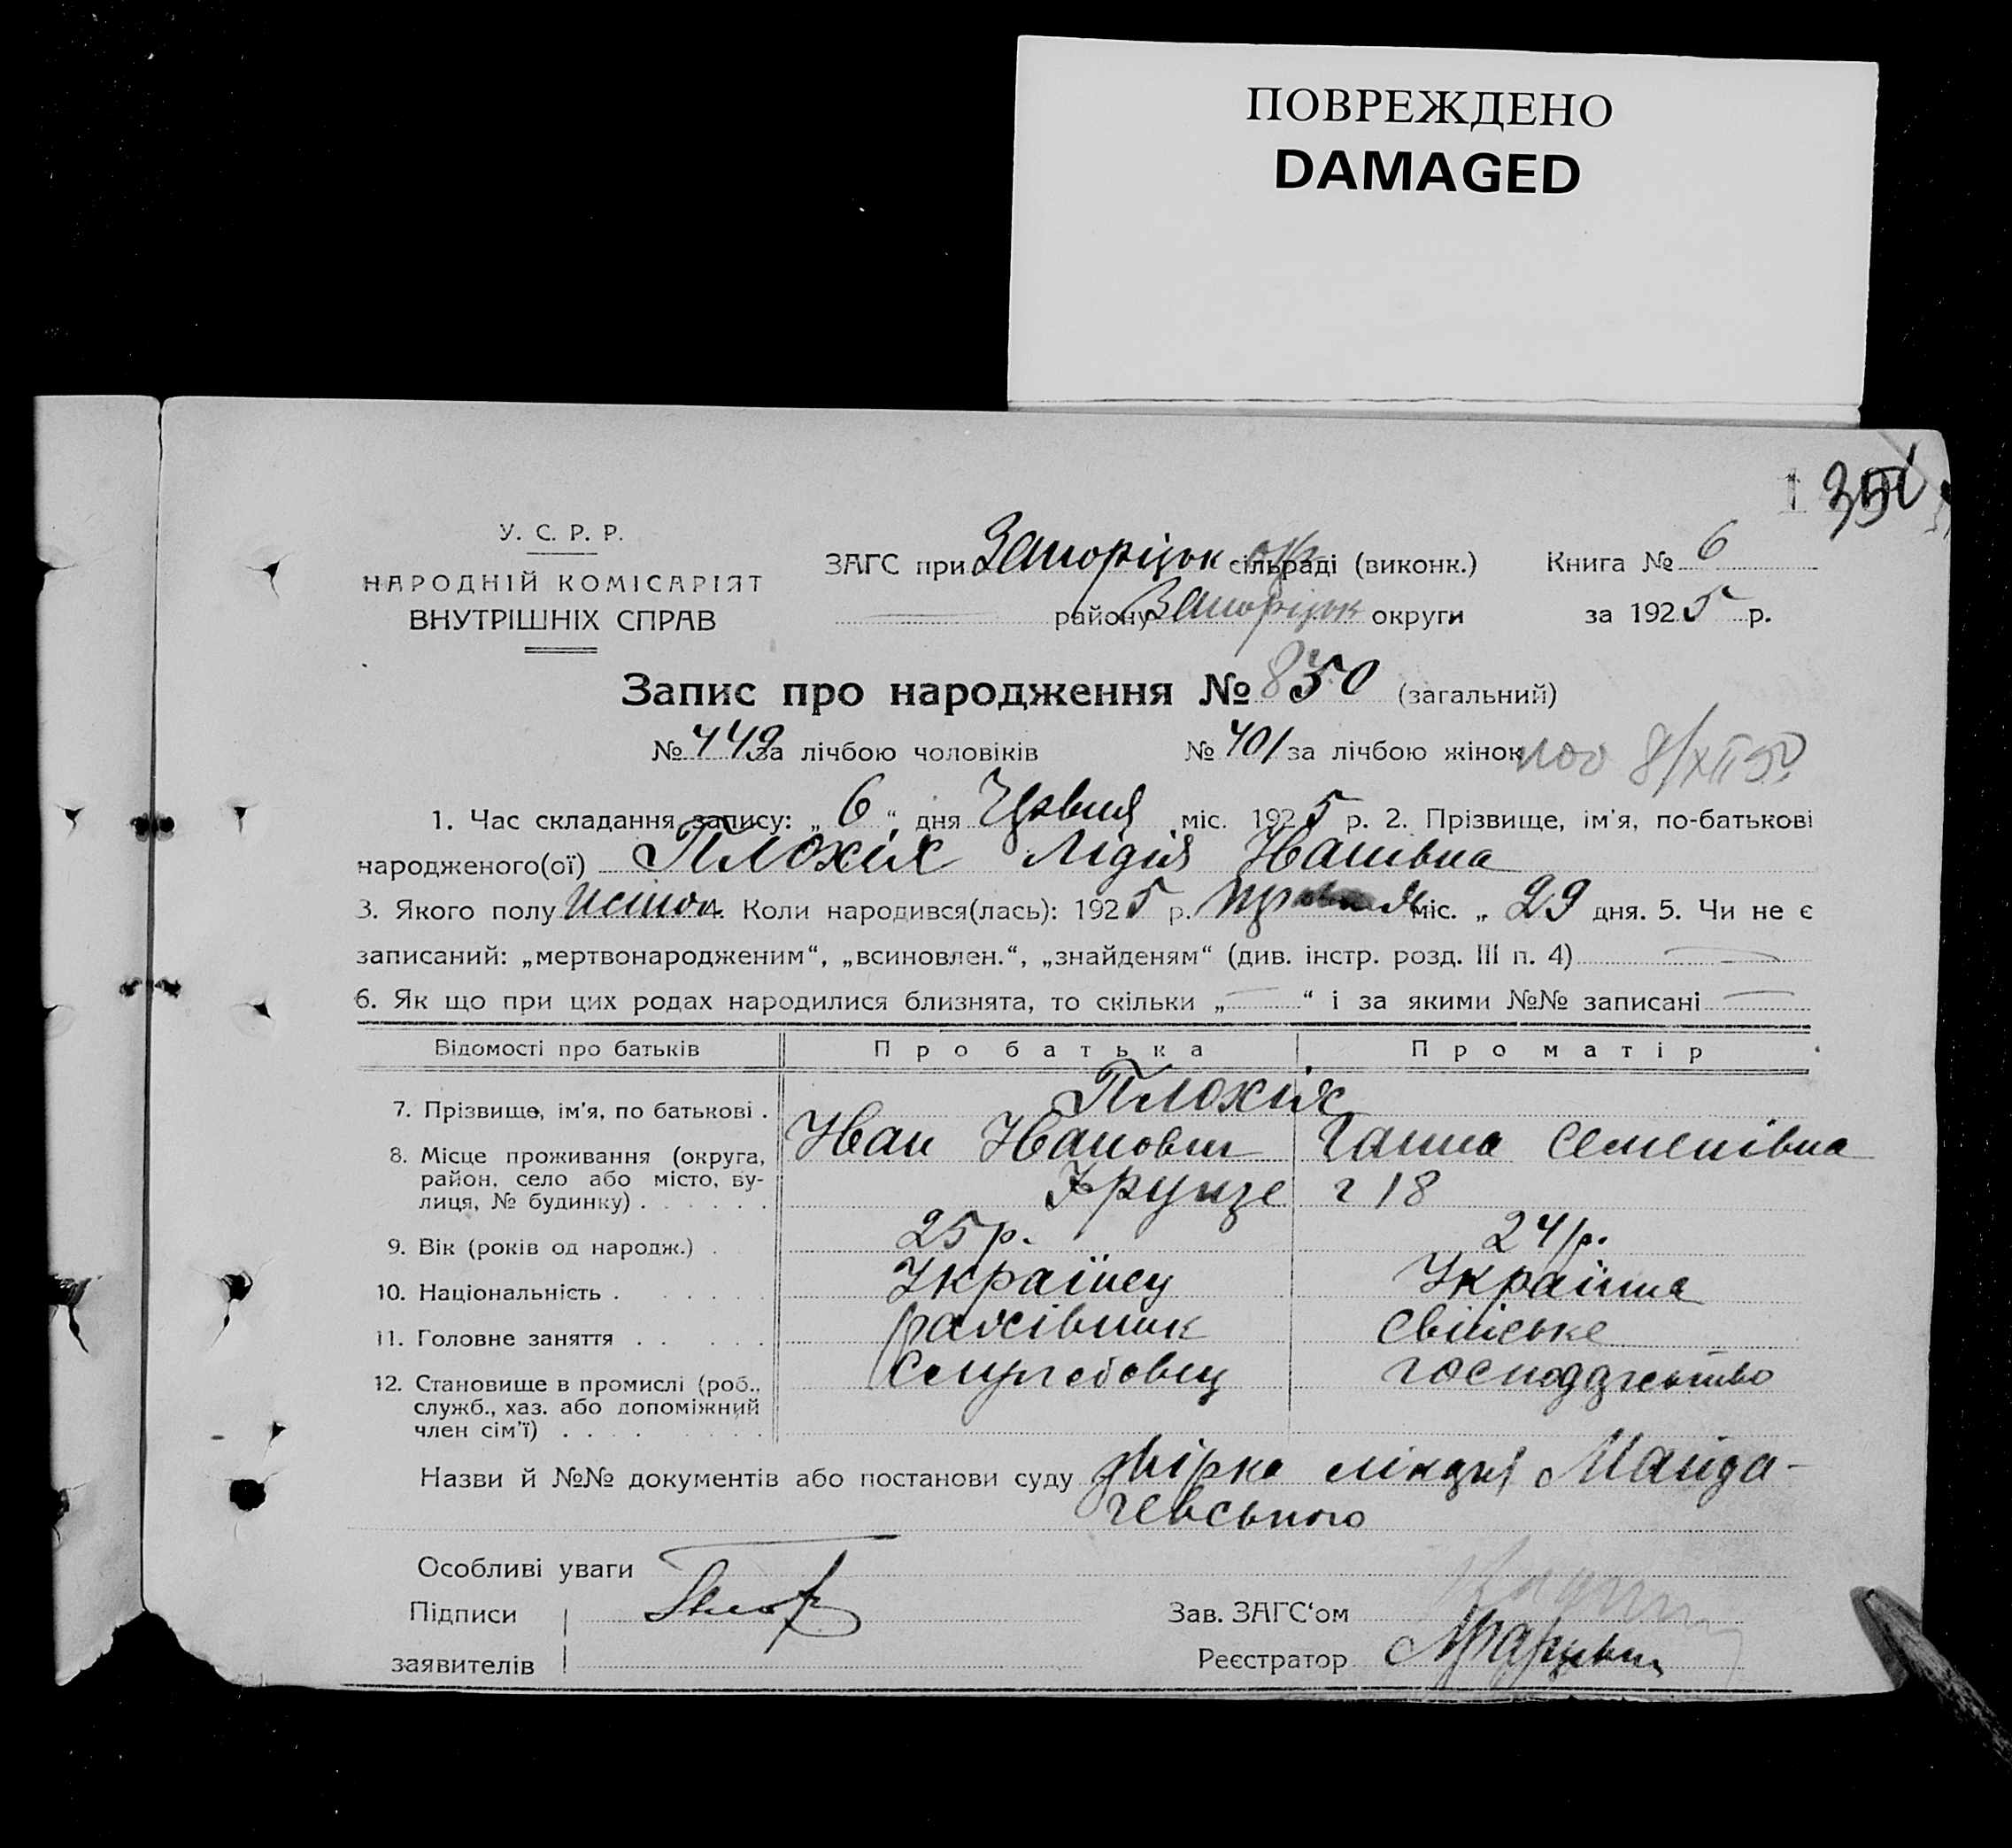 ПОВРЕЖДЕНО
DAMAGED
У. С. Р. Р.
НАРОДНІЙ КОМІСАРІЯТ
ВНУТРІШНІХ СПРАВ
ЗАГС при Запоріжок окр сільраді (виконк.) Книга № 6
району Запоріжок округи за 1925 р.
Запис про народження № 850 (загальний)
№ 449 за лічбою чоловіків № 401 за лічбою жінок
1. Час складання запису: „ 6 “ дня Червня міс. 1925 р. 2. Прізвище, ім'я, по-батькові
народженого(ої) Плохіх Лідія Іванівна
3. Якого полу жіноч. 4. Коли народився(лась): 1925 р. травня міс. „ 29 дня. 5. Чи не є
записаний: „мертвонародженим“, „всиновлен.“, „знайденям“ (див. інстр. розд. III п. 4)
6. Як що при цих родах народилися близнята, то скільки „ — “ і за якими №№ записані —
Відомості про батьків Про батька Про матір
7. Прізвище, ім'я, по батькові . Плохіх
Иван Иванович Ганна Семенівна
8. Місце проживання (округа, район, село або місто, вулиця, № будинку) . . . . . . Фрунзе 18
9. Вік (років од народж.) . 25 р. 24 р.
10. Національність . . . . . . Українец Українка
11. Головне заняття . . . . . рахівник свійське
12. Становище в промислі (роб., служб., хаз. або допоміжний член сім'ї) . . . . . . . . господарство
Назви й №№ документів або постанови суду довірка лікаря Майда-
чевського
Особливі уваги
Підписи
Зав. ЗАГС‘ом
заявителів
Реєстратор